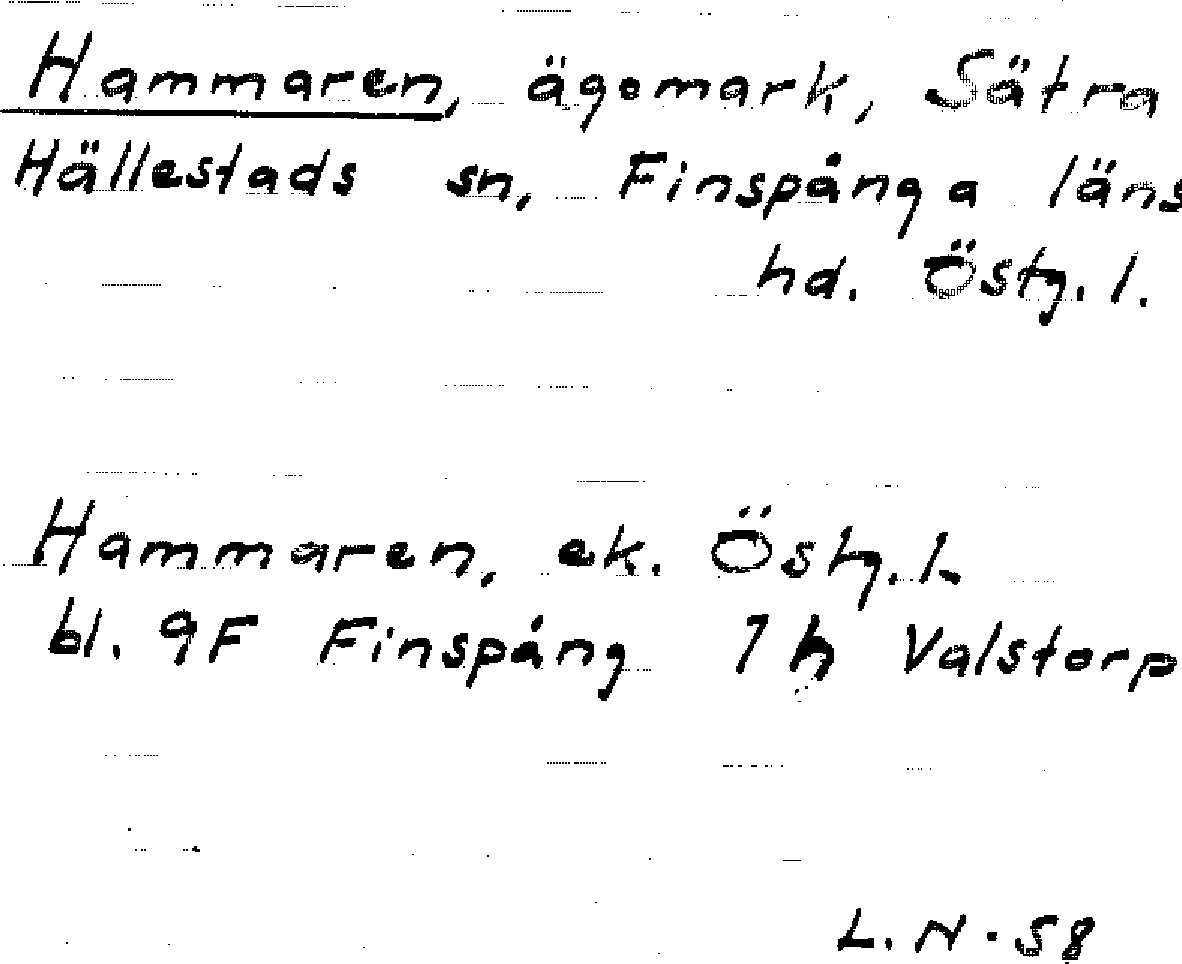 Hammaren, ägomark, Sätra
Hällestads sn, Finspånga läns
hd. Östg. l.
Hammaren, ek. Östg. l.
bl. 9F Finspång 7h Valstorp
L. N. 58